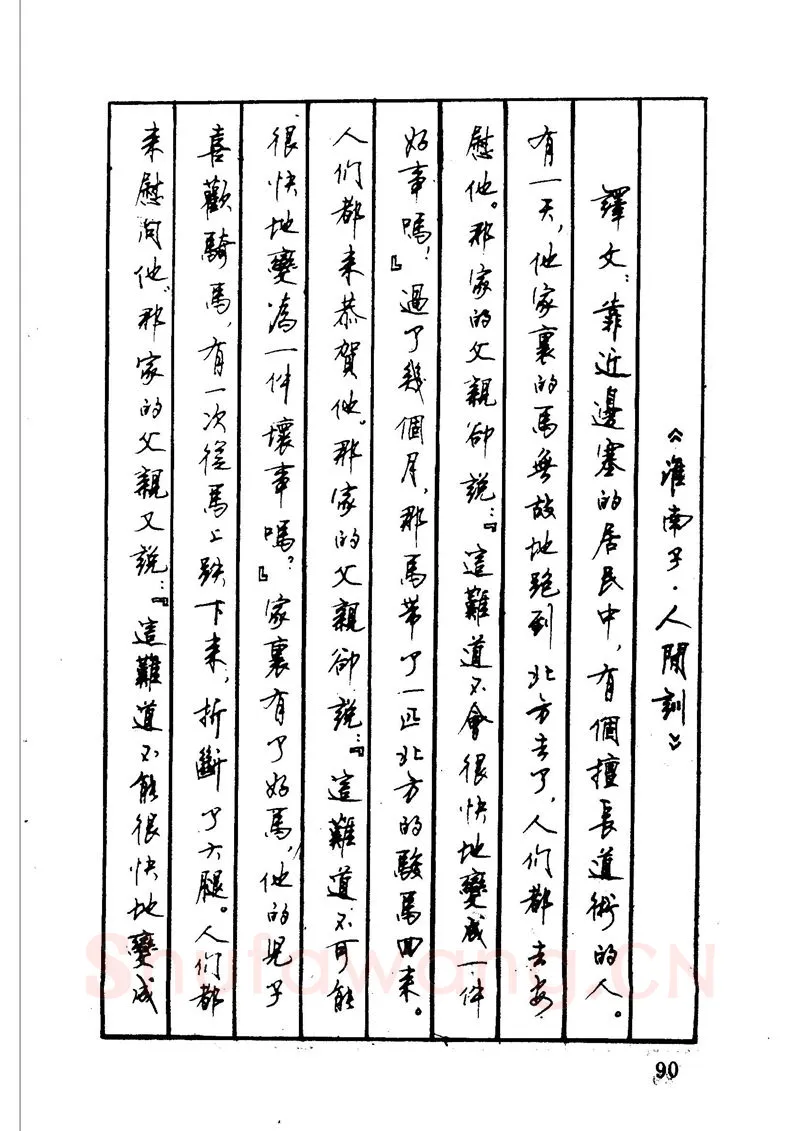 《淮南子·人間訓》
譯文：靠近邊塞的居民中，有個擅長道術的人。
有一天，他家裏的馬無故地跑到北方去了，人们都去安
慰他。那家的父親卻說：『這難道不會很快地變成一件
好事嗎？』過了幾個月，那馬帶了一匹北方的駿馬回来。
人们都来恭賀他。那家的父親卻說：『這難道不可能
很快地變為一件壞事嗎？』家裏有了好馬，他的児子
喜歡騎馬，有一次從馬上跌下来，折斷了大腿。人们都
来慰问他。那家的父親又說：『這難道不能很快地變成
90
Shufawang.CN